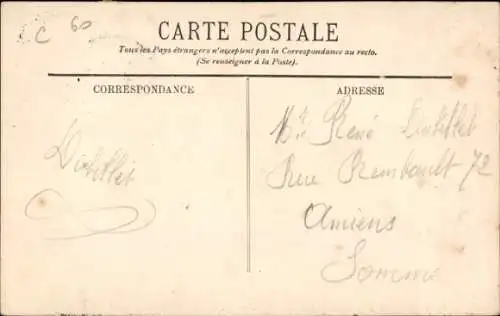 C 60
CARTE POSTALE
Tous les Pays étrangers n'acceptent pas la Correspondance au recto.
(Se renseigner à la Poste).
CORRESPONDANCE
ADRESSE
René
Rue Rembault 72
Amiens
Somme